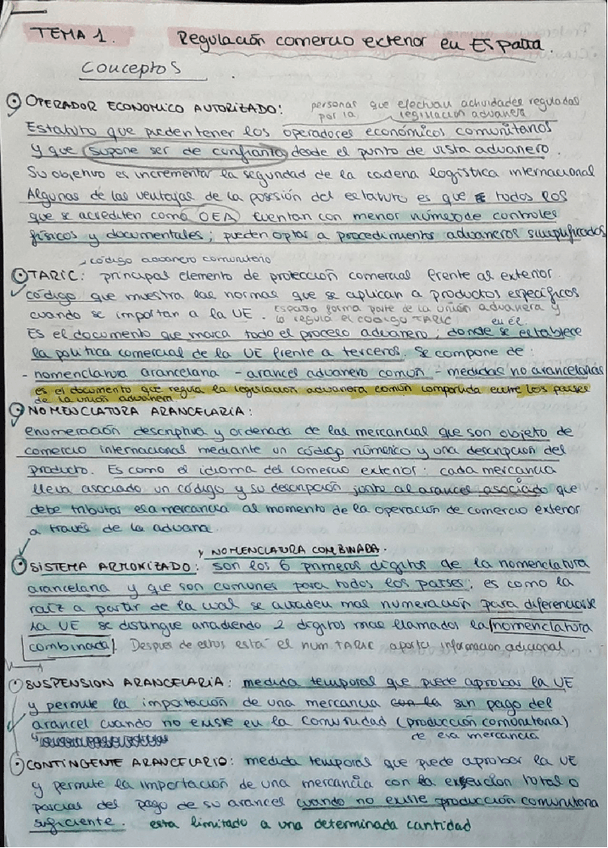 TEMA 1. Regulación comercio exterior en España.
Conceptos
OPERADOR ECONOMICO AUTORIZADO: personas que efectuan actividades reguladas
por la legislación aduanera
Estatuto que pueden tener los operadores económicos comunitarios
y que supone ser de confianza desde el punto de vista aduanero.
Su objetivo es incrementar la seguridad de la cadena logística internacional
Algunas de las ventajas de la posesión del estatuto es que todos los
que se acrediten como OEA cuentan con menor número de controles
físicos y documentales, pueden optar a procedimientos aduaneros simplificados
código aduanero comunitario
TARIC: principal elemento de protección comercial frente al exterior
código que muestra las normas que se aplican a productos específicos
cuando se importan a la UE. España forma parte de la unión aduanera y
lo regula el código TARIC
Es el documento que marca todo el proceso aduanero, donde se establece
en él
la política comercial de la UE frente a terceros. Se compone de:
- nomenclatura arancelaria - arancel aduanero común - medidas no arancelarias
es el documento que regula la legislación aduanera común compartida entre los países
de la unión aduanera
NOMENCLATURA ARANCELARIA:
enumeración descriptiva y ordenada de las mercancias que son objeto de
comercio internacional mediante un código númerico y una descripción del
producto. Es como el idioma del comercio exterior: cada mercancia
lleva asociado un código y su descripción junto al arancel asociado que
debe tributar esa mercancia al momento de la operación de comercio exterior
a través de la aduana
NOMENCLAURA COMBINADA.
SISTEMA ARMONIZADO: son los 6 primeros dígitos de la nomenclatura
arancelaria y que son comunes para todos los países; es como la
raíz a partir de la cual se añaden mas numeración para diferenciarse
La UE se distingue añadiendo 2 dígitos mas llamados la nomenclatura
combinada. Despues de estos está el num TARIC aporta información adicional.
SUSPENSION ARANCELARIA: medida temporal que puede aprobar la UE
y permite la importación de una mercancia con la sin pago del
arancel cuando no existe en la comunidad (producción comunitaria)
de esa mercancia
CONTINGENTE ARANCELARIO: medida temporal que puede aprobar la UE
y permite la importación de una mercancía con la exención total o
parcial del pago de su arancel cuando no existe producción comunitaria
suficiente. esta limitado a una determinada cantidad